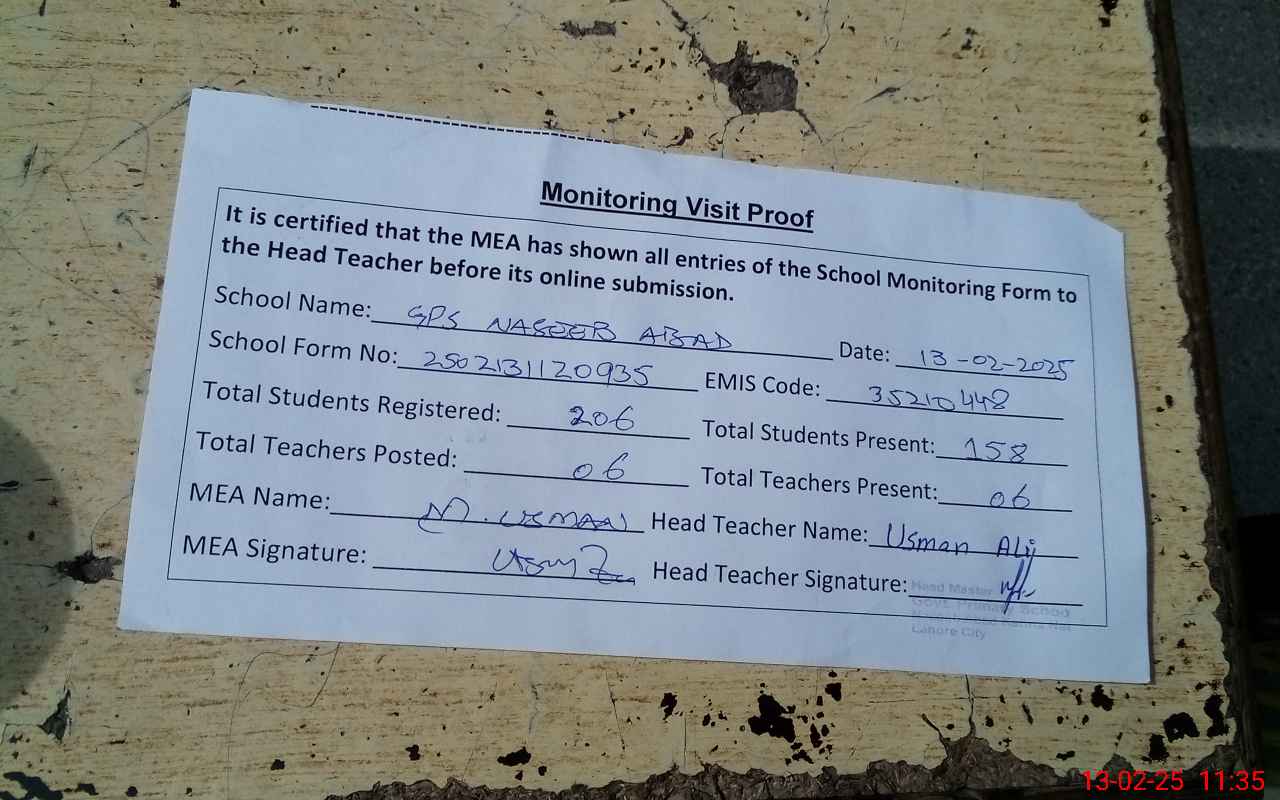 Monitoring Visit Proof
It is certified that the MEA has shown all entries of the School Monitoring Form to
the Head Teacher before its online submission.
School Name: GPS NASEEB ABAD Date: 13-02-2025
School Form No: 2502131120935 EMIS Code: 35210448
Total Students Registered: 206 Total Students Present: 158
Total Teachers Posted: 06 Total Teachers Present: 06
MEA Name: M. USMAN Head Teacher Name: Usman Ali
MEA Signature: Head Teacher Signature:
Head Master
Govt. Primary School
Lahore City
13-02-25 11:35